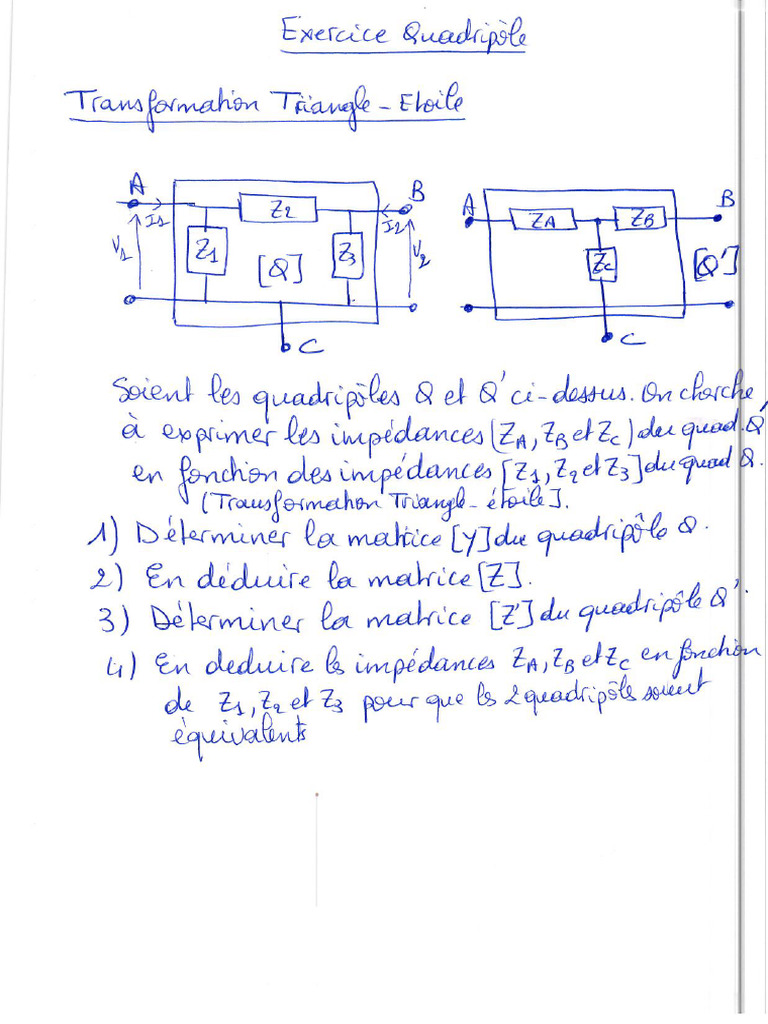 Exercice Quadripôle
Transformation Triangle - Etoile
A
I1
Z2
B
I2
V1
Z1
[Q]
Z3
V2
C
A
ZA
ZB
B
Zc
[Q']
C
Soient les quadripôles Q et Q' ci-dessus. On cherche
à exprimer les impédances (ZA, ZB et Zc) du quad. Q'
en fonction des impédances [Z1, Z2 et Z3] du quad Q.
(Transformation Triangle - étoile].
1) Déterminer la matrice [Y] du quadripôle Q.
2) En déduire la matrice [Z].
3) Déterminer la matrice [Z'] du quadripôle Q'.
4) En deduire ls impédances ZA, ZB et Zc en fonction
de Z1, Z2 et Z3 pour que ls 2 quadripôls soient
équivalents